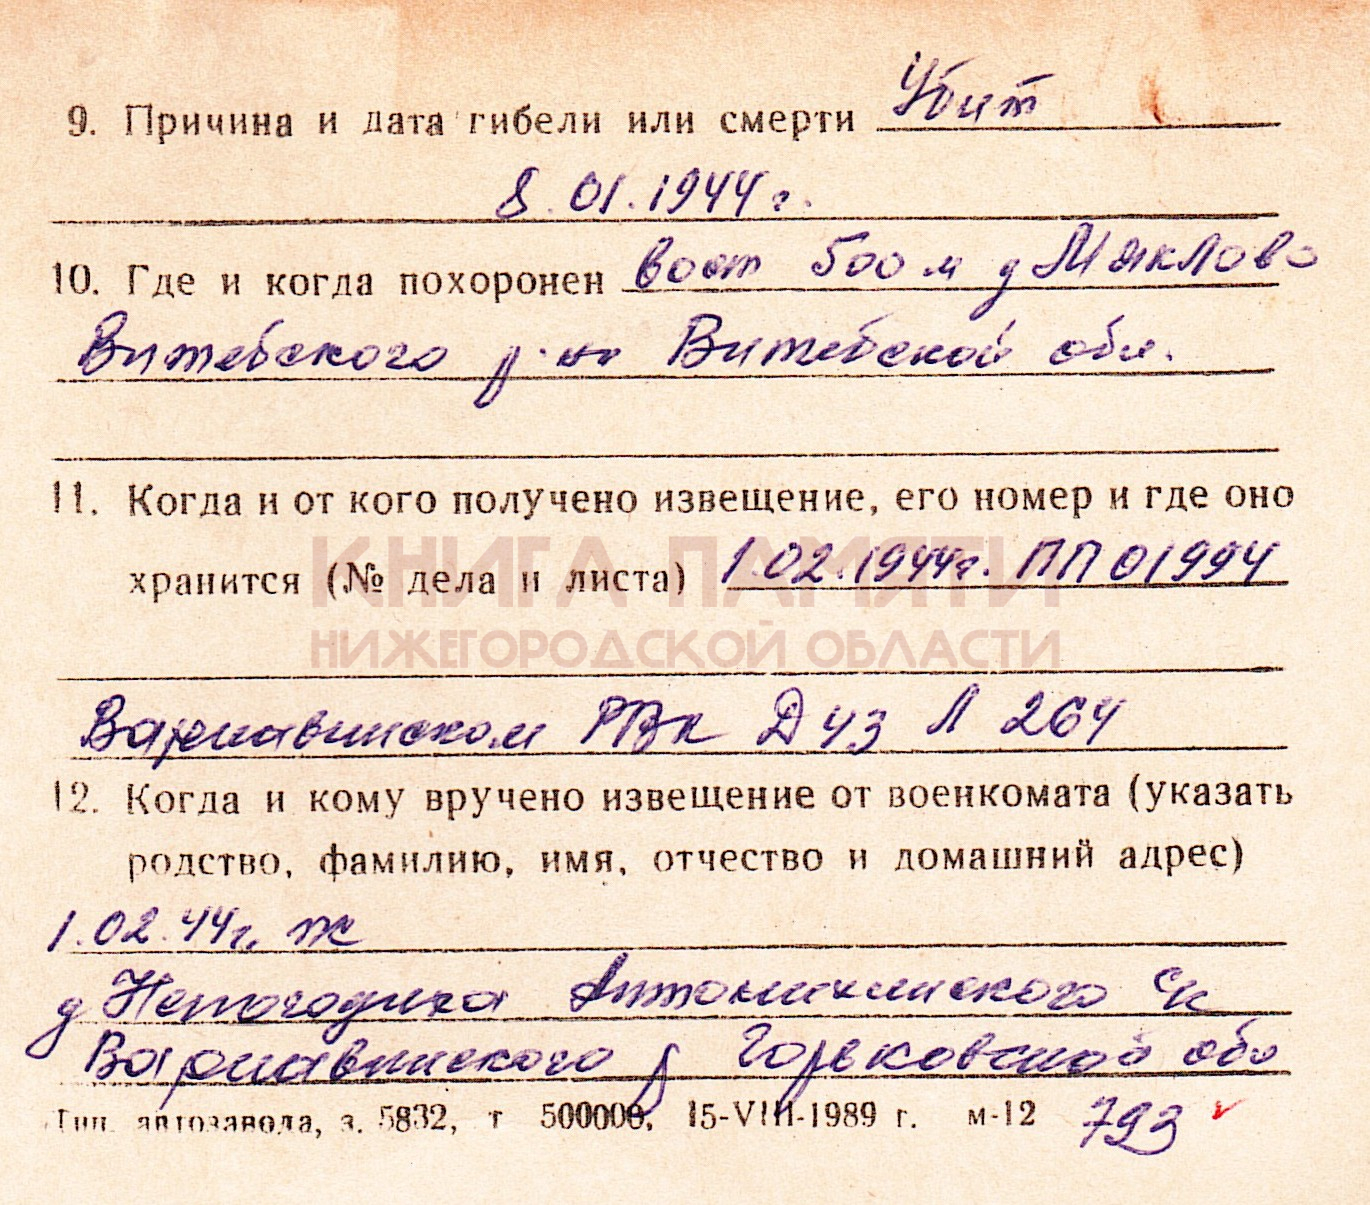 9. Причина и дата гибели или смерти Убит
8.01.1944 г.
10. Где и когда похоронен вост 500 м д Мяклово
Витебского р-на Витебской обл.
11. Когда и от кого получено извещение, его номер и где оно
хранится (№ дела и листа) 1.02.1944г. ПП 01994
КНИГА ПАМЯТИ
НИЖЕГОРОДСКОЙ ОБЛАСТИ
Варнавинском РВК Д 43 Л 264
12. Когда и кому вручено извещение от военкомата (указать
родство, фамилию, имя, отчество и домашний адрес)
1.02.44г. ж
д Непогодиха Антонихинского с/с
Варнавинского р Горьковской обл
Тип. автозавода, з. 5832, т 500000, 15-VIII-1989 г. м-12 793